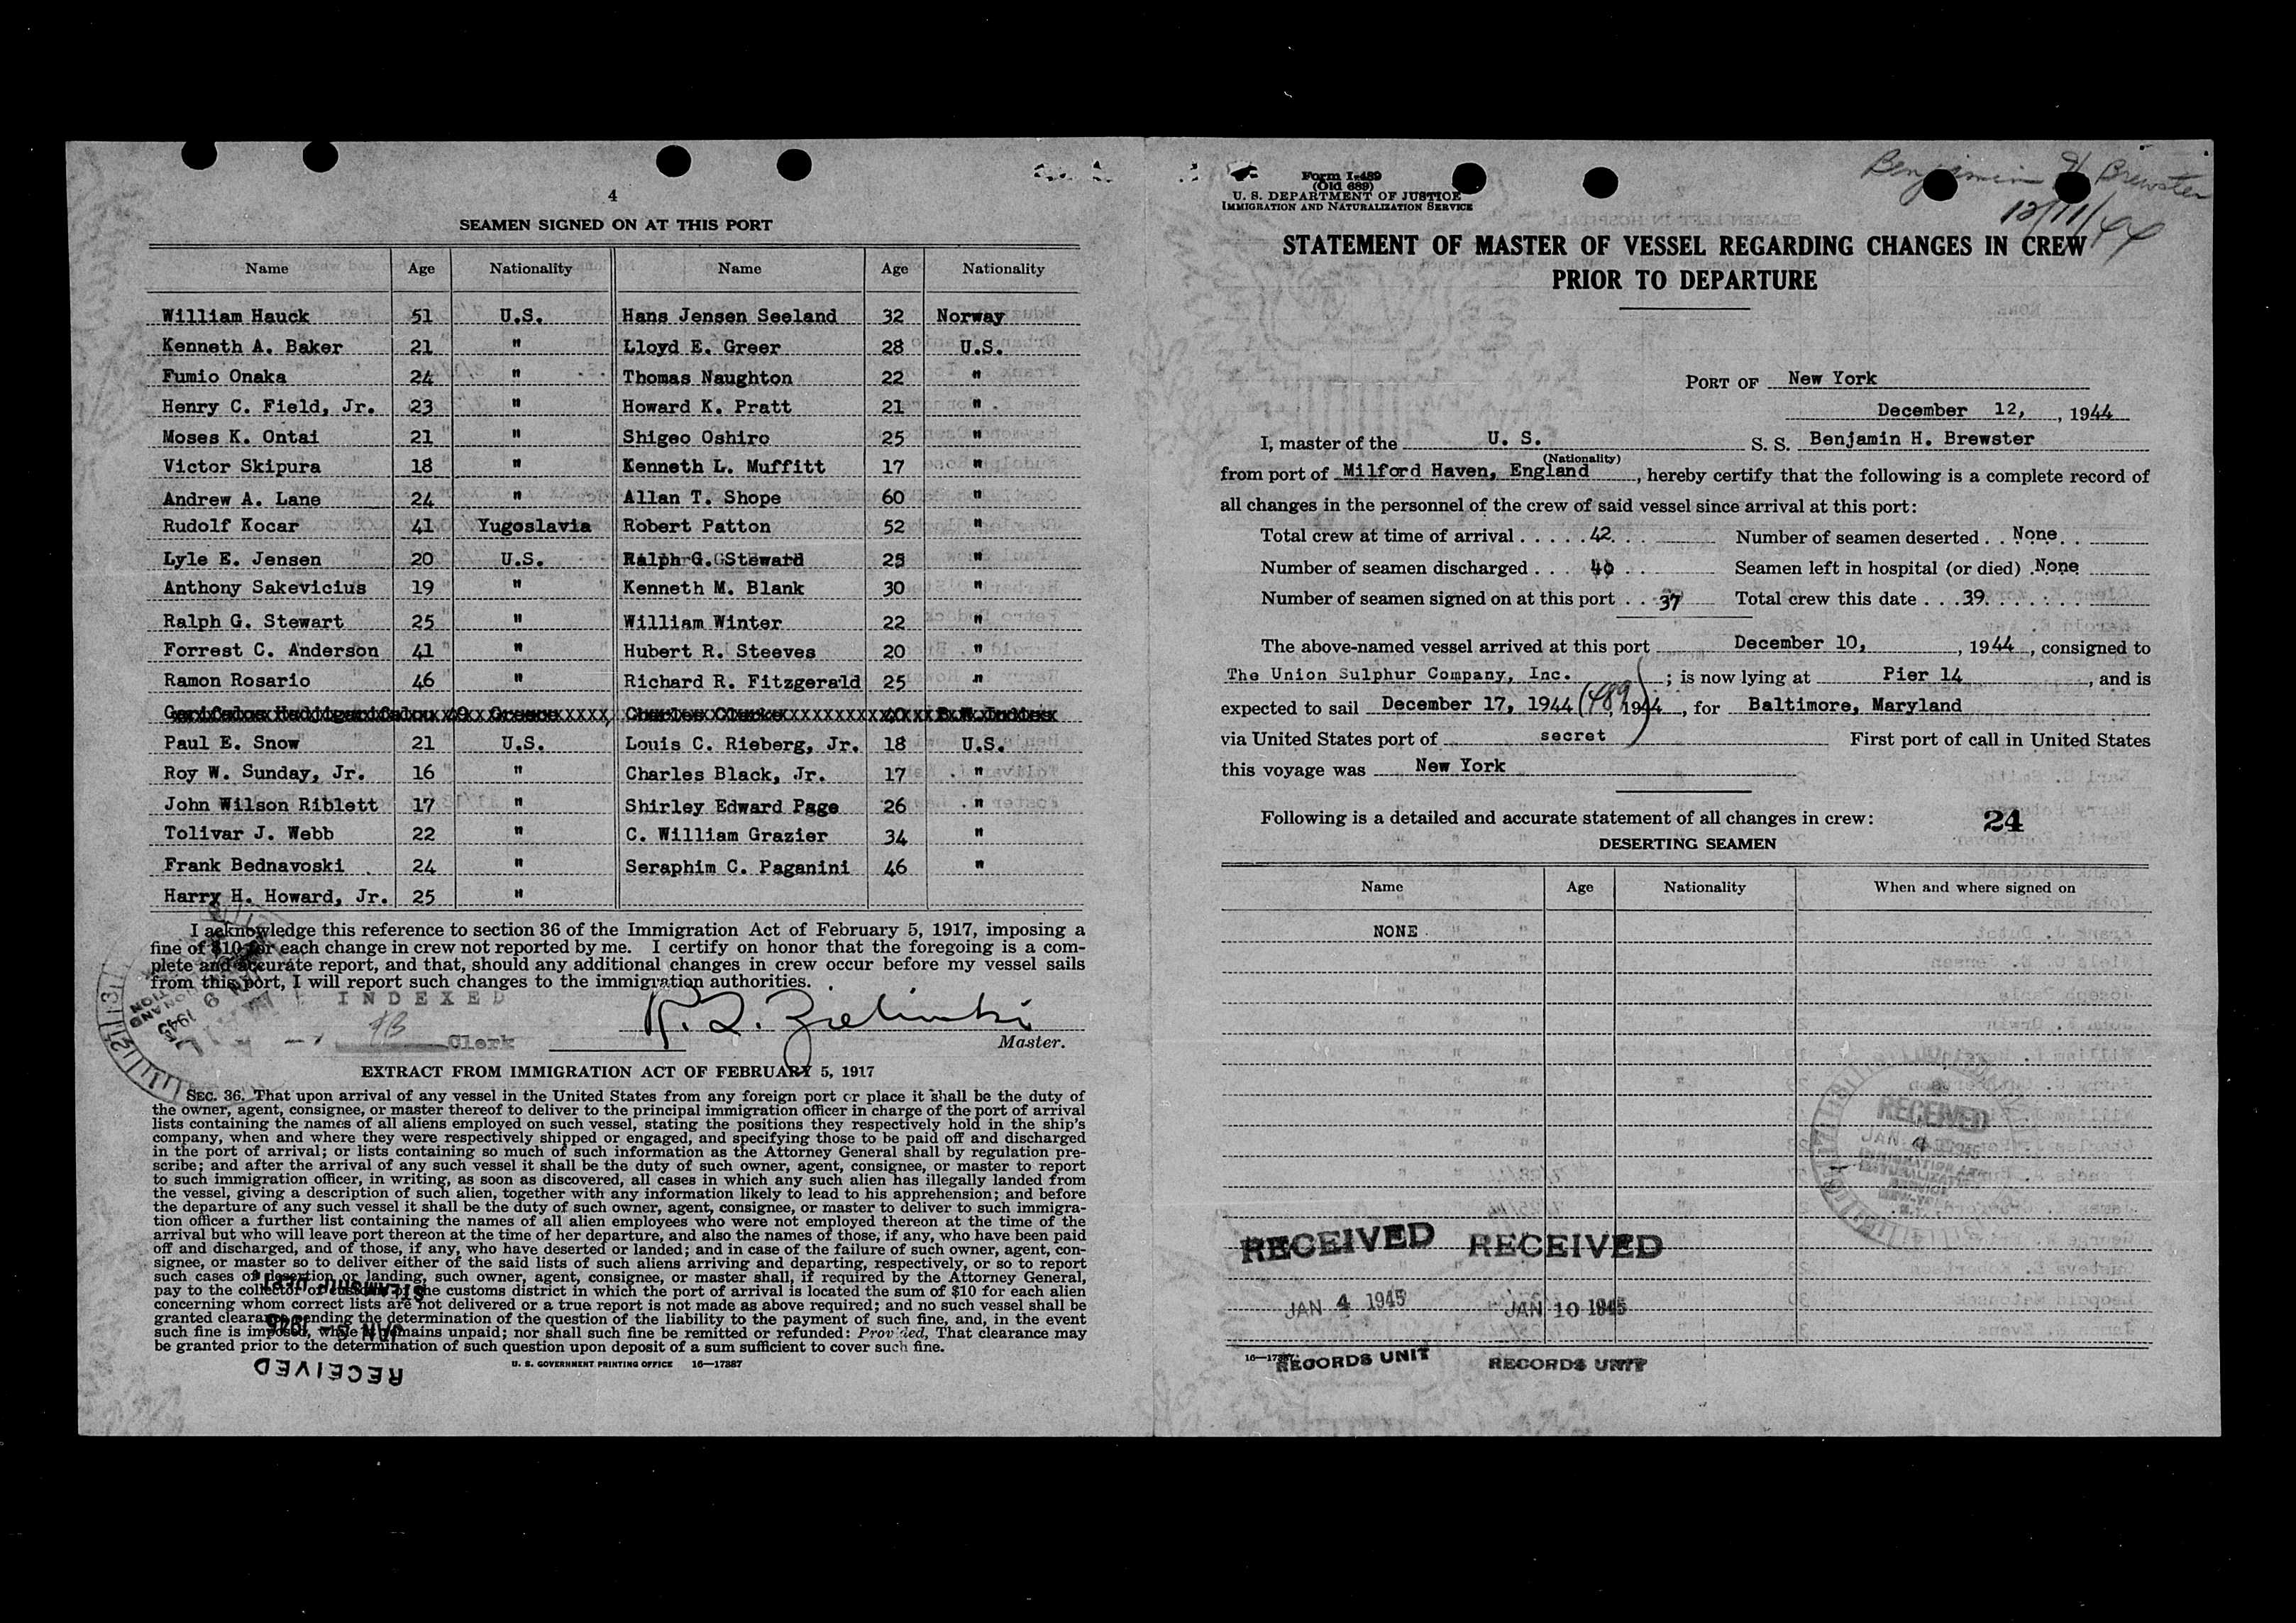 4
SEAMEN SIGNED ON AT THIS PORT
Name Age Nationality Name Age Nationality
William Hauck 51 U.S. Hans Jensen Seeland 32 Norway
Kenneth A. Baker 21 " Lloyd E. Greer 28 U.S.
Fumio Onaka 24 " Thomas Naughton 22 "
Henry C. Field, Jr. 23 " Howard K. Pratt 21 "
Moses K. Ontai 21 " Shigeo Oshiro 25 "
Victor Skipura 18 " Kenneth L. Muffitt 17 "
Andrew A. Lane 24 " Allan T. Shope 60 "
Rudolf Kocar 41 Yugoslavia Robert Patton 52 "
Lyle E. Jensen 20 U.S. Ralph G. Steward 25 "
Anthony Sakevicius 19 " Kenneth M. Blank 30 "
Ralph G. Stewart 25 " William Winter 22 "
Forrest C. Anderson 41 " Hubert R. Steeves 20 "
Ramon Rosario 46 " Richard R. Fitzgerald 25 "
Greece Charles Clarke B.W.Indies
Paul E. Snow 21 U.S. Louis C. Rieberg, Jr. 18 U.S.
Roy W. Sunday, Jr. 16 " Charles Black, Jr. 17 "
John Wilson Riblett 17 " Shirley Edward Page 26 "
Tolivar J. Webb 22 " C. William Grazier 34 "
Frank Bednavoski 24 " Seraphim C. Paganini 46 "
Harry H. Howard, Jr. 25 "
I acknowledge this reference to section 36 of the Immigration Act of February 5, 1917, imposing a
fine of $10 for each change in crew not reported by me. I certify on honor that the foregoing is a com-
plete and accurate report, and that, should any additional changes in crew occur before my vessel sails
from this port, I will report such changes to the immigration authorities.
INDEXED
Clerk
R. L. Zielinski
Master.
EXTRACT FROM IMMIGRATION ACT OF FEBRUARY 5, 1917
SEC. 36. That upon arrival of any vessel in the United States from any foreign port or place it shall be the duty of
the owner, agent, consignee, or master thereof to deliver to the principal immigration officer in charge of the port of arrival
lists containing the names of all aliens employed on such vessel, stating the positions they respectively hold in the ship's
company, when and where they were respectively shipped or engaged, and specifying those to be paid off and discharged
in the port of arrival; or lists containing so much of such information as the Attorney General shall by regulation pre-
scribe; and after the arrival of any such vessel it shall be the duty of such owner, agent, consignee, or master to report
to such immigration officer, in writing, as soon as discovered, all cases in which any such alien has illegally landed from
the vessel, giving a description of such alien, together with any information likely to lead to his apprehension; and before
the departure of any such vessel it shall be the duty of such owner, agent, consignee, or master to deliver to such immigra-
tion officer a further list containing the names of all alien employees who were not employed thereon at the time of the
arrival but who will leave port thereon at the time of her departure, and also the names of those, if any, who have been paid
off and discharged, and of those, if any, who have deserted or landed; and in case of the failure of such owner, agent, con-
signee, or master so to deliver either of the said lists of such aliens arriving and departing, respectively, or so to report
such cases of desertion or landing, such owner, agent, consignee, or master shall, if required by the Attorney General,
pay to the collector of customs of the customs district in which the port of arrival is located the sum of $10 for each alien
concerning whom correct lists are not delivered or a true report is not made as above required; and no such vessel shall be
granted clearance pending the determination of the question of the liability to the payment of such fine, and, in the event
such fine is imposed, while it remains unpaid; nor shall such fine be remitted or refunded: Provided, That clearance may
be granted prior to the determination of such question upon deposit of a sum sufficient to cover such fine.
U. S. GOVERNMENT PRINTING OFFICE 16—17387
RECEIVED
STEAMSHIP DEPT
Benjamin H Brewster
12/11/44
Form I-489
(Old 689)
U. S. DEPARTMENT OF JUSTICE
IMMIGRATION AND NATURALIZATION SERVICE
STATEMENT OF MASTER OF VESSEL REGARDING CHANGES IN CREW
PRIOR TO DEPARTURE
PORT OF New York
December 12, , 1944
I, master of the U. S. S. S. Benjamin H. Brewster
(Nationality)
from port of Milford Haven, England , hereby certify that the following is a complete record of
all changes in the personnel of the crew of said vessel since arrival at this port:
Total crew at time of arrival . . . . . 42 Number of seamen deserted . . None
Number of seamen discharged . . . 40 Seamen left in hospital (or died) . None
Number of seamen signed on at this port . . 37 Total crew this date . . . 39
The above-named vessel arrived at this port December 10, , 1944 , consigned to
The Union Sulphur Company, Inc. ; is now lying at Pier 14 , and is
expected to sail December 17, 1944 (489) , 1944 , for Baltimore, Maryland
via United States port of secret First port of call in United States
this voyage was New York
Following is a detailed and accurate statement of all changes in crew:
24
DESERTING SEAMEN
Name Age Nationality When and where signed on
NONE
RECEIVED
JAN 4 1945
IMMIGRATION AND
NATURALIZATION
SERVICE
RECEIVED RECEIVED
JAN 4 1945 JAN 10 1945
16—17387
RECORDS UNIT RECORDS UNIT